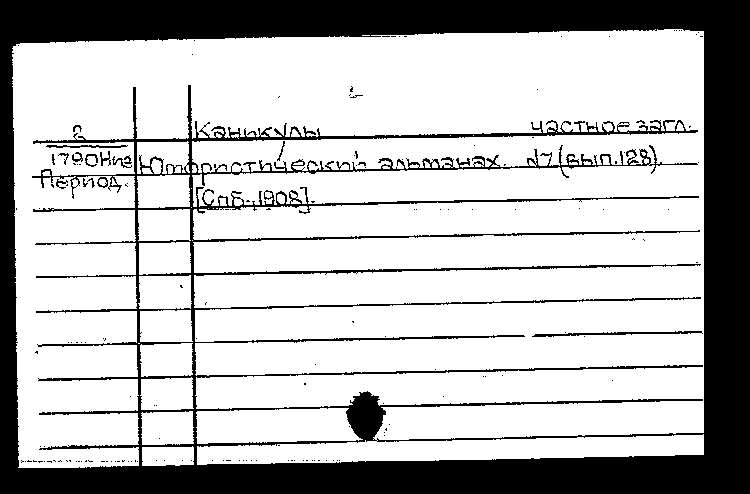 2 Каникулы частное загл.
1790 Юмористический альманах. №7 (вып.128).
Период. [Спб., 1908].